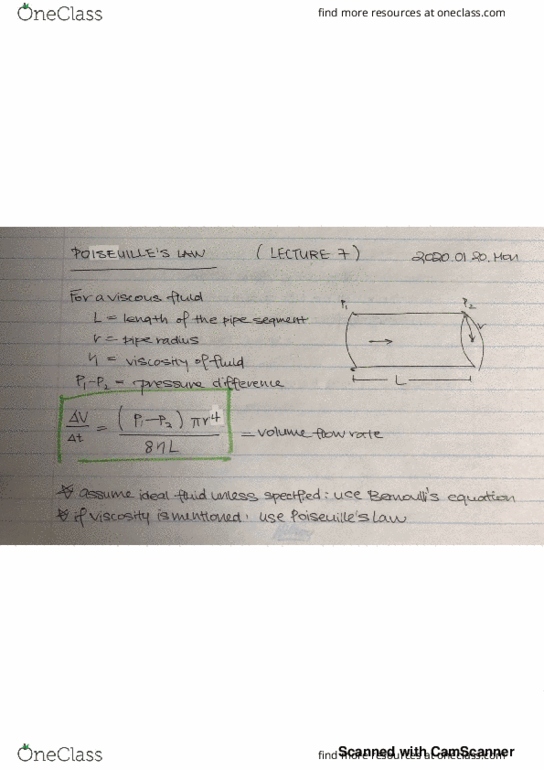 OneClass
find more resources at oneclass.com
POISEUILLE'S LAW ( LECTURE 7 ) 2020.01.20.Mon
For a viscous fluid
L = length of the pipe segment
r = pipe radius
η = viscosity of fluid
P₁-P₂ = pressure difference
P₁ P₂ r
L
ΔV/Δt = (P₁-P₂) πr⁴ / 8ηL = volume flow rate
☆ assume ideal fluid unless specified: use Bernoulli's equation
☆ if viscosity is mentioned: use Poiseuille's Law
OneClass
find more resources at oneclass.com
Scanned with CamScanner